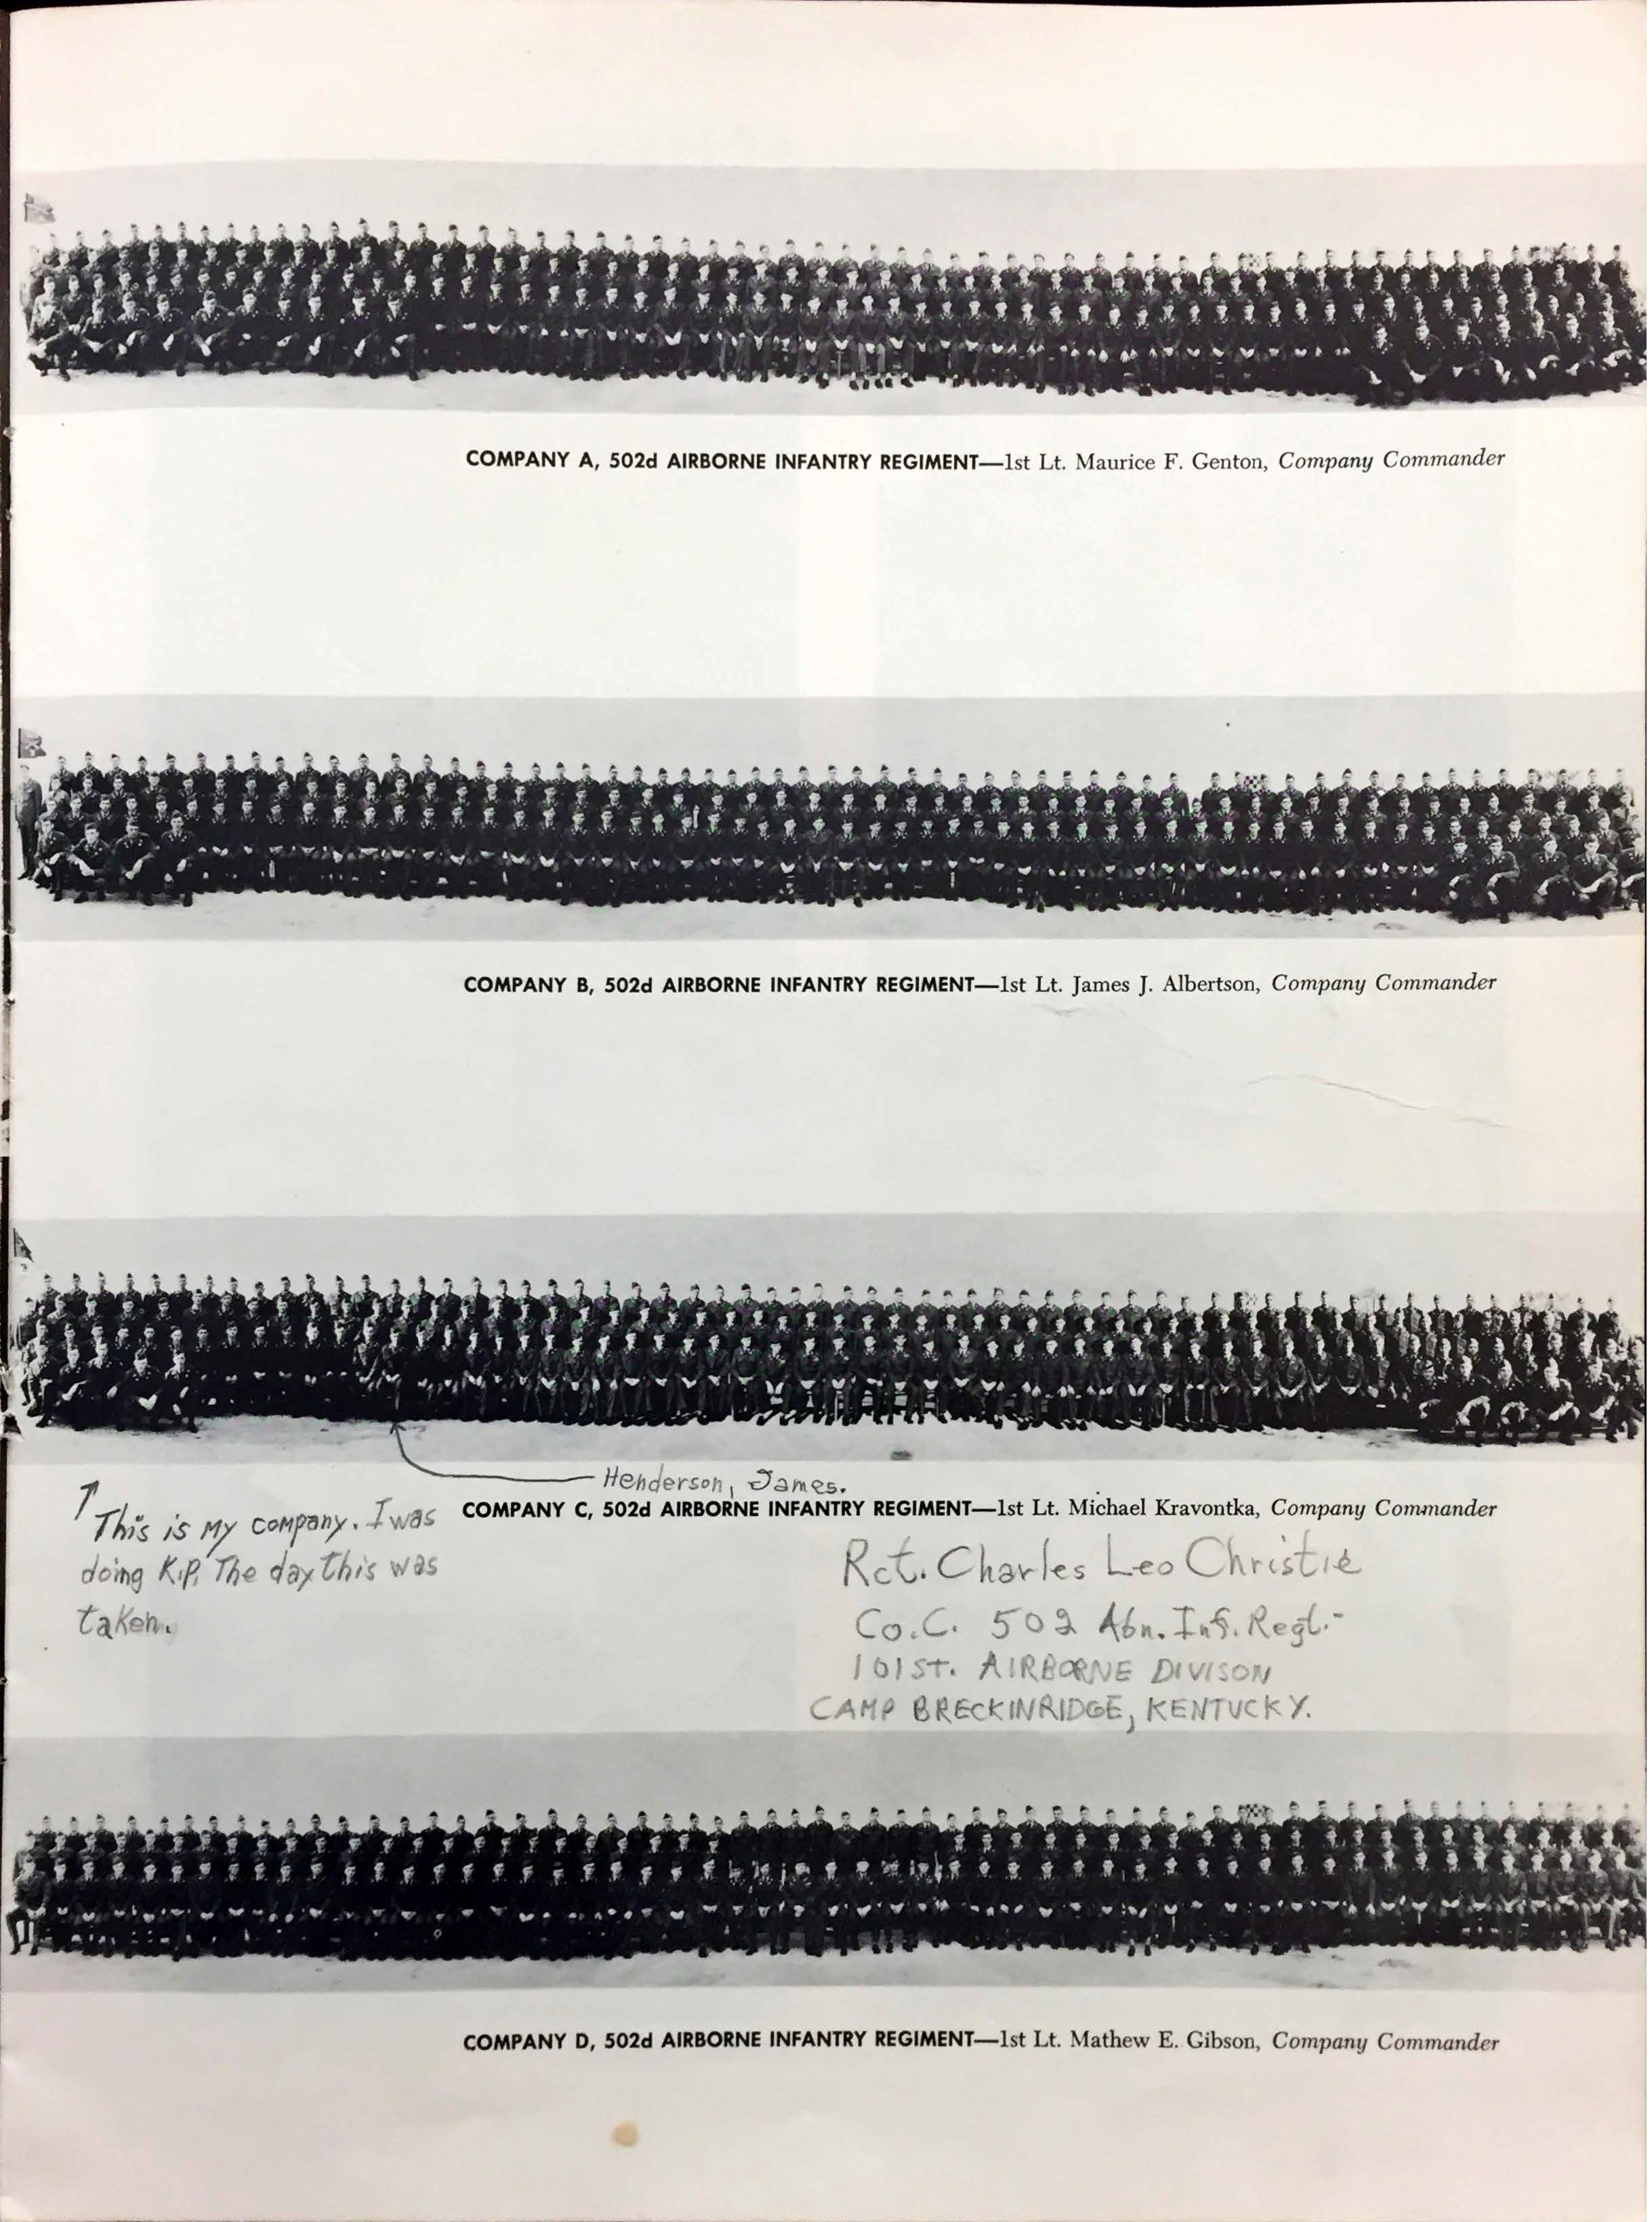 COMPANY A, 502d AIRBORNE INFANTRY REGIMENT—1st Lt. Maurice F. Genton, Company Commander
COMPANY B, 502d AIRBORNE INFANTRY REGIMENT—1st Lt. James J. Albertson, Company Commander
Henderson, James.
COMPANY C, 502d AIRBORNE INFANTRY REGIMENT—1st Lt. Michael Kravontka, Company Commander
This is my company. I was
doing K.P. The day this was
taken.
Rct. Charles Leo Christie
Co. C. 502 Abn. Inf. Regt.-
101ST. AIRBORNE DIVISON
CAMP BRECKINRIDGE, KENTUCKY.
COMPANY D, 502d AIRBORNE INFANTRY REGIMENT—1st Lt. Mathew E. Gibson, Company Commander